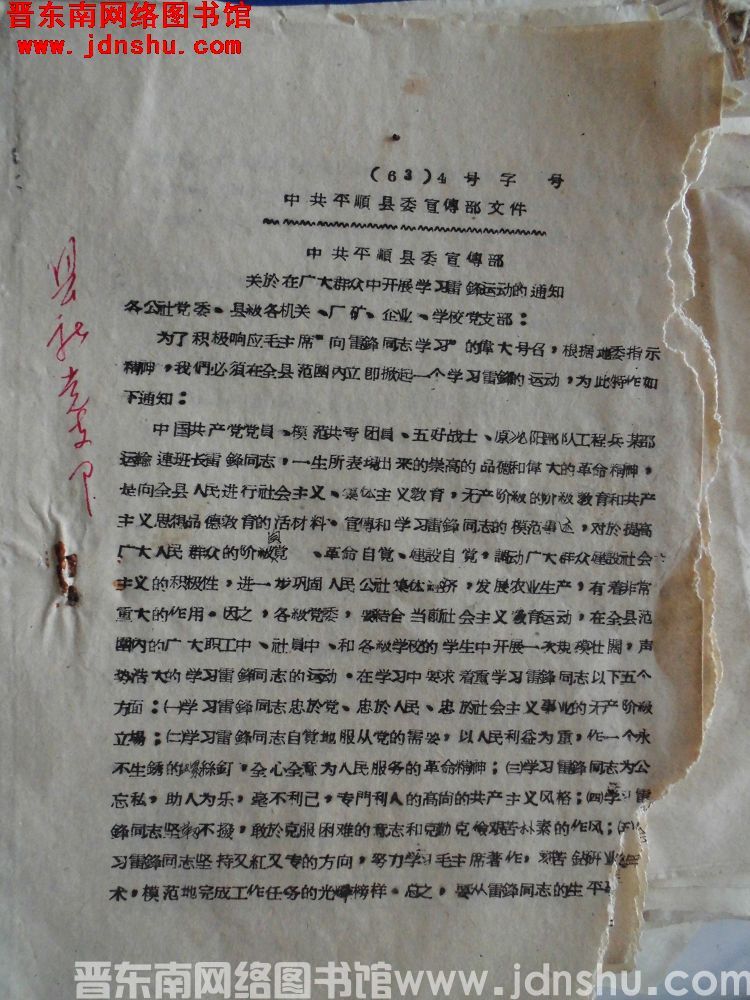 晋东南网络图书馆
www.jdnshu.com
(63)4号字 号
中共平順县委宣傳部文件
中共平順县委宣傳部
关於在广大群众中开展学习雷鋒运动的通知
各公社党委、县級各机关、厂矿、企业、学校党支部：
为了积极响应毛主席"向雷鋒同志学习"的偉大号召，根据地委指示
精神，我們必須在全县范圍內立即掀起一个学习雷鋒的运动，为此特作如
下通知：
中国共产党党員、模范共青团員、五好战士、原沈阳部队工程兵某部
运输連班长雷鋒同志，一生所表現出来的崇高的品德和偉大的革命精神，
是向全县人民进行社会主义、集体主义教育，无产阶級的阶級教育和共产
主义思想品德教育的活材料。宣傳和学习雷鋒同志的模范事迹，对於提高
广大人民群众的阶級覚 、革命自觉、建設自覚，調动广大群众建設社会
主义的积极性，进一步巩固人民公社集体經济，发展农业生产，有着非常
重大的作用。因之，各級党委，要結合当前社会主义教育运动，在全县范
圍內的广大职工中、社員中、和各級学校的学生中开展一次規模壮闊，声
势浩大的学习雷鋒同志的运动。在学习中要求着重学习雷鋒同志以下五个
方面：㈠学习雷鋒同志忠於党、忠於人民、忠於社会主义事业的无产阶級
立場；㈡学习雷鋒同志自覚地服从党的需要，以人民利益为重，作一个永
不生銹的螺絲釘，全心全意为人民服务的革命精神；㈢学习雷鋒同志为公
忘私，助人为乐，毫不利己，专門利人的高尚的共产主义风格；㈣学习雷
鋒同志坚靱不掇，敢於克服困难的意志和克勤克儉艰苦朴素的作风；㈤
习雷鋒同志坚持又紅又专的方向，努力学习毛主席著作，刻苦鈷研业
术，模范地完成工作任务的光輝榜样。总之，要从雷鋒同志的生平
晋东南网络图书馆www.jdnshu.com